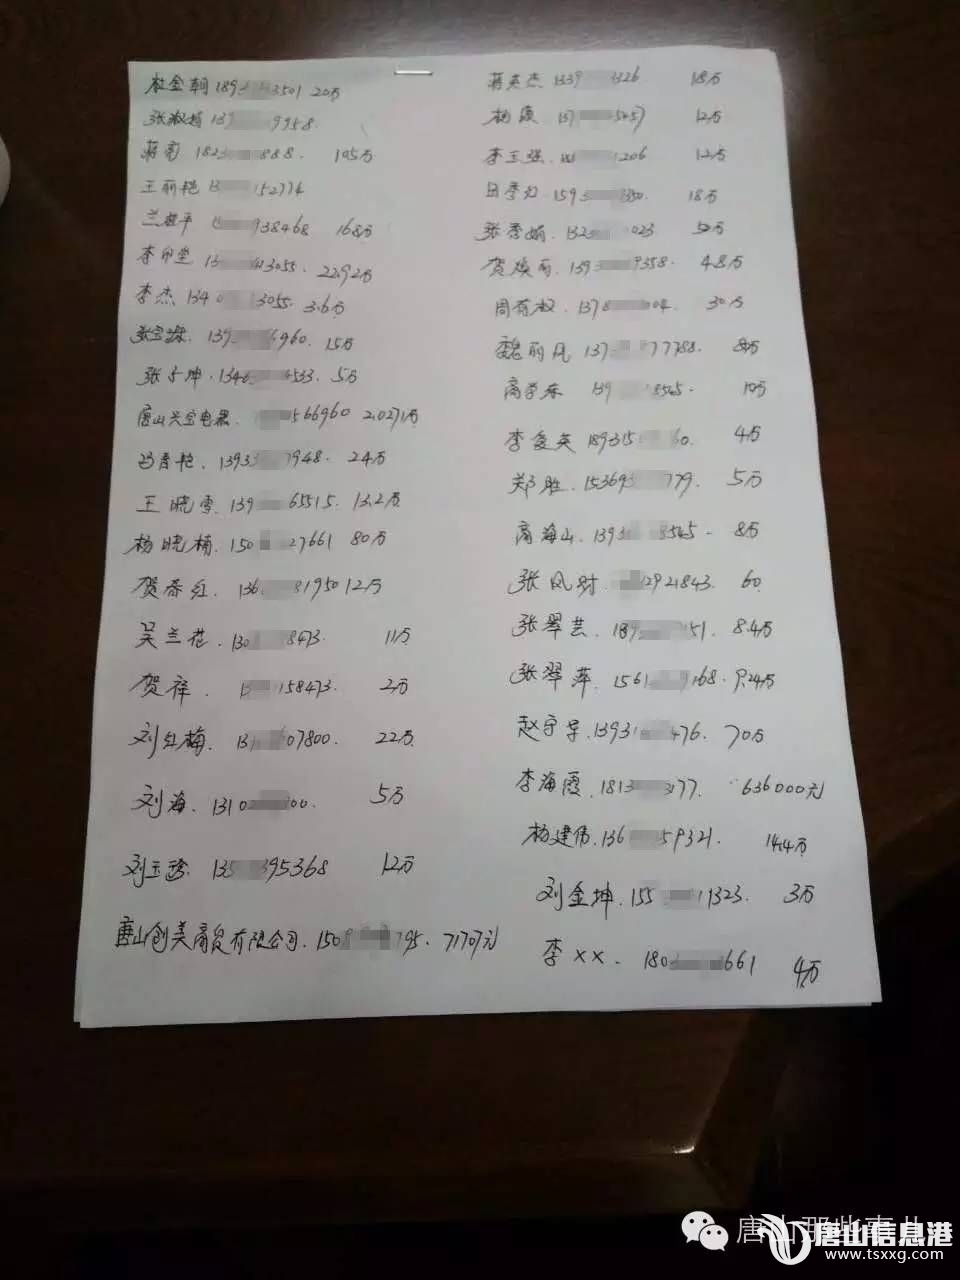 杜金朝 189 3501 20万
张淑娟 139 9958.
蒋 1823 888. 105万
王丽艳 1 152774
兰 平 938468 168万
李印堂 13 3055. 22.92万
李杰 1340 3055. 3.6万
张宝 139 6960. 15万
张占坤 .1346 4533. 5万
唐山兴宝电器. 566960 2.0271万
冯香艳. 1393 7948. 24万
王晓雪. 139 65515. 13.2万
杨晓楠. 150 27661 80万
贺春红. 136 81950 12万
吴兰花. 130 8473. 11万
贺祥. 1 158473. 2万
刘红梅. 13 07800. 22万
刘海. 1310 00. 5万
刘玉珍. 135 395368 12万
唐山创美商贸有限公司. 150 795. 71707元
蒋英杰 1339 3326 18万
杨 137 5457 12万
李玉强. 1206 12万
秀红 159 350. 18万
张秀娟 132 023 5万
贺焕丽. 139 9358. 4.8万
周有权. 1378 004. 30万
魏丽凤 137 77788. 8万
高学东 139 8565. 10万
李复英 189315 60. 4万
郑胜. 153693 779. 5万
高海山. 1393 8565. 8万
张凤财. 2921843. 60
张翠芸. 189 151. 8.4万
张翠萍. 1561 9168. 9.24万
赵守导. 13931 476. 70万
李海霞. 1813 3177. 636000元
杨建伟. 136 59321. 14.4万
刘金坤. 155 11323. 3万
李××. 180 661 4万
唐山那些事儿
唐山信息港
www.tsxxg.com